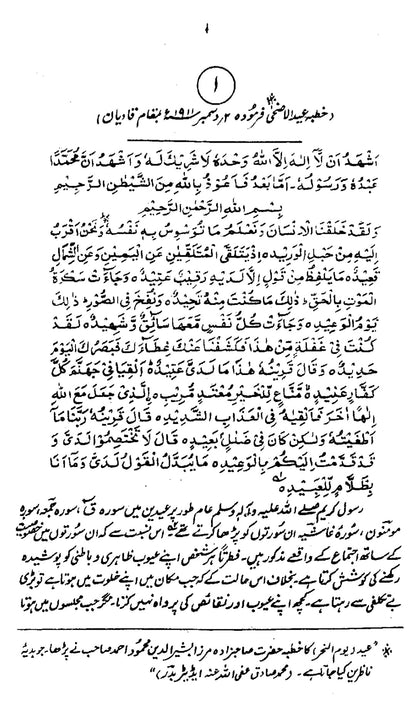 ۱
۱
(خطبہ عید الاضحیٰ فرمودہ ۲؍دسمبر ۱۹۱۱ء بمقام قادیان)
اَشْهَدُ اَنْ لَّا اِلٰهَ اِلَّا اللّٰهُ وَحْدَهٗ لَا شَرِيْكَ لَهٗ وَاَشْهَدُ اَنَّ مُحَمَّدًا
عَبْدُهٗ وَرَسُوْلُهٗ۔ اَمَّا بَعْدُ فَاَعُوْذُ بِاللّٰهِ مِنَ الشَّيْطٰنِ الرَّجِيْمِ
بِسْمِ اللّٰهِ الرَّحْمٰنِ الرَّحِيْمِ
وَلَقَدْ خَلَقْنَا الْاِنْسَانَ وَنَعْلَمُ مَا تُوَسْوِسُ بِهٖ نَفْسُهٗ وَنَحْنُ اَقْرَبُ
اِلَيْهِ مِنْ حَبْلِ الْوَرِيْدِ ه اِذْ يَتَلَقَّى الْمُتَلَقِّيٰنِ عَنِ الْيَمِيْنِ وَعَنِ الشِّمَالِ
قَعِيْدٌ ه مَا يَلْفِظُ مِنْ قَوْلٍ اِلَّا لَدَيْهِ رَقِيْبٌ عَتِيْدٌ ه وَجَآءَتْ سَكْرَةُ
الْمَوْتِ بِالْحَقِّ ذٰلِكَ مَا كُنْتَ مِنْهُ تَحِيْدُ ه وَنُفِخَ فِى الصُّوْرِ ذٰلِكَ
يَوْمُ الْوَعِيْدِ ه وَجَآءَتْ كُلُّ نَفْسٍ مَّعَهَا سَآئِقٌ وَّشَهِيْدٌ ه لَقَدْ
كُنْتَ فِىْ غَفْلَةٍ مِّنْ هٰذَا فَكَشَفْنَا عَنْكَ غِطَآءَكَ فَبَصَرُكَ الْيَوْمَ
حَدِيْدٌ ه وَقَالَ قَرِيْنُهٗ هٰذَا مَا لَدَىَّ عَتِيْدٌ ه اَلْقِيَا فِىْ جَهَنَّمَ كُلَّ
كَفَّارٍ عَنِيْدٍ ه مَّنَّاعٍ لِّلْخَيْرِ مُعْتَدٍ مُّرِيْبٍ ه اِلَّذِىْ جَعَلَ مَعَ اللّٰهِ
اِلٰهًا اٰخَرَ فَاَلْقِيٰهُ فِى الْعَذَابِ الشَّدِيْدِ ه قَالَ قَرِيْنُهٗ رَبَّنَا مَآ
اَطْغَيْتُهٗ وَلٰكِنْ كَانَ فِىْ ضَلٰلٍ بَعِيْدٍ ه قَالَ لَا تَخْتَصِمُوْا لَدَىَّ وَ
قَدْ قَدَّمْتُ اِلَيْكُمْ بِالْوَعِيْدِ ه مَا يُبَدَّلُ الْقَوْلُ لَدَىَّ وَمَآ اَنَا
بِظَلَّامٍ لِّلْعَبِيْدِ ه
رسول کریم صلے اللہ علیہ وآلہٖ وسلم عام طور پر عیدین میں سورہ قٓ، سورہ جمعہ، سورہ
مومنون، سورۂ غاشیہ ان سورتوں کو پڑھا کرتے تھے اس نسبت سے کہ ان سورتوں میں خصوصیت
کے ساتھ اجتماع کے واقعے مذکور ہیں۔ فطرتاً ہر شخص اپنے عیوب ظاہری و باطنی کو پوشیدہ
رکھنے کی کوشش کرتا ہے۔ بخلاف اس حالت کے کہ جب مکان میں اپنے خلوت میں ہوتا ہے تو بڑی
بے تکلفی سے رہتا ہے۔ کچھ اپنے عیوب اور نقائص کی پرواہ نہیں کرتا۔ مگر جب مجلسوں میں ہوتا
٭ "عید (یوم النحر) کا خطبہ حضرت صاحبزادہ مرزا بشیر الدین محمود احمد صاحب نے پڑھا۔ جو ہدیہ
ناظرین کیا جاتا ہے۔ (محمد صادق عفی اللہ عنہ ایڈیٹر بدؔر)"